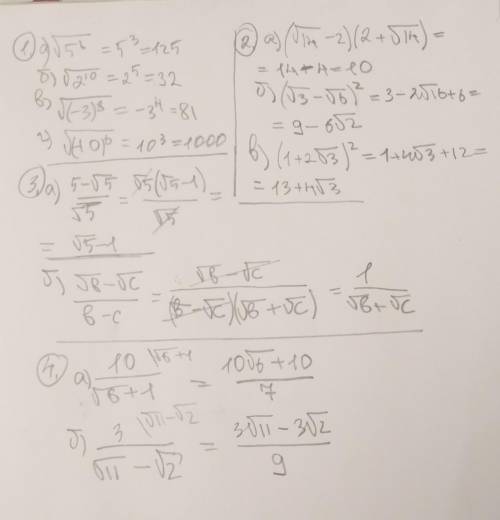 1) а) √5⁶ = 5³ = 125
б) √2¹⁰ = 2⁵ = 32
в) √(-3)⁸ = -3⁴ = 81
г) = 10³ = 1000
2. а) (√14 - 2)(2 + √14) =
= 14 - 4 = 10
б) (√3 - √6)² = 3 - 2√18 + 6 =
= 9 - 6√2
в) (1 + 2√3)² = 1 + 4√3 + 12 =
= 13 + 4√3
3. а) (5 - √5)/√5 = √5(√5 - 1)/√5 =
= √5 - 1
б) (√в - √с)/(в - с) = (√в - √с)/((√в - √с)(√в + √с)) = 1/(√в + √с)
4. а) 10/(√6 + 1) |√6+1 = (10√6 + 10)/7
б) 3/(√11 - √2) |√11-√2 = (3√11 - 3√2)/9